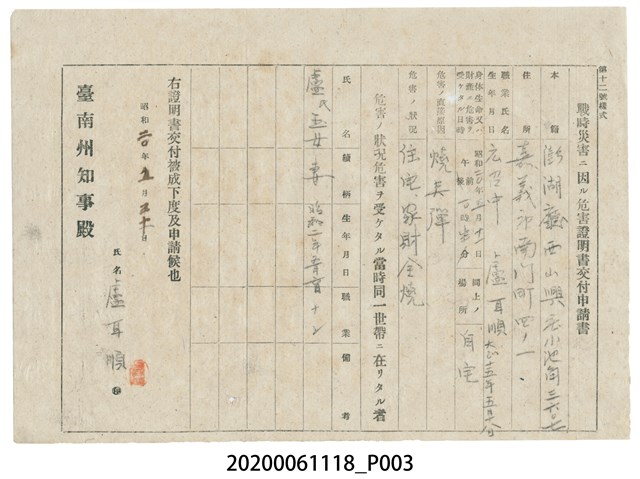 第十二號樣式
戰時災害ニ因ル危害證明書交付申請書
本籍 澎湖廳西山興庄小池角三六〇七
住所 嘉義市南門町四ノ一、
職業氏名生年月日 盧耳順 大正十五年五月十八日
身体生命又ハ財產ニ危害ヲ受ケタル日時 昭和二〇年 月十一日 午前後 時半分 同上ノ場所 自宅
危害ノ直接原因 燒夷彈
危害ノ狀況 住宅、家財全燒
危害ノ狀況危害ヲ受ケタル當時同一世帶ニ在リタル者
氏名 續柄 生年月日 職業 備考
盧氏玉女 妻 昭和二年
右證明書交付被成下度及申請候也
昭和二〇年五月 日
氏名 盧耳順 ㊞
臺南州知事殿
20200061118_P003